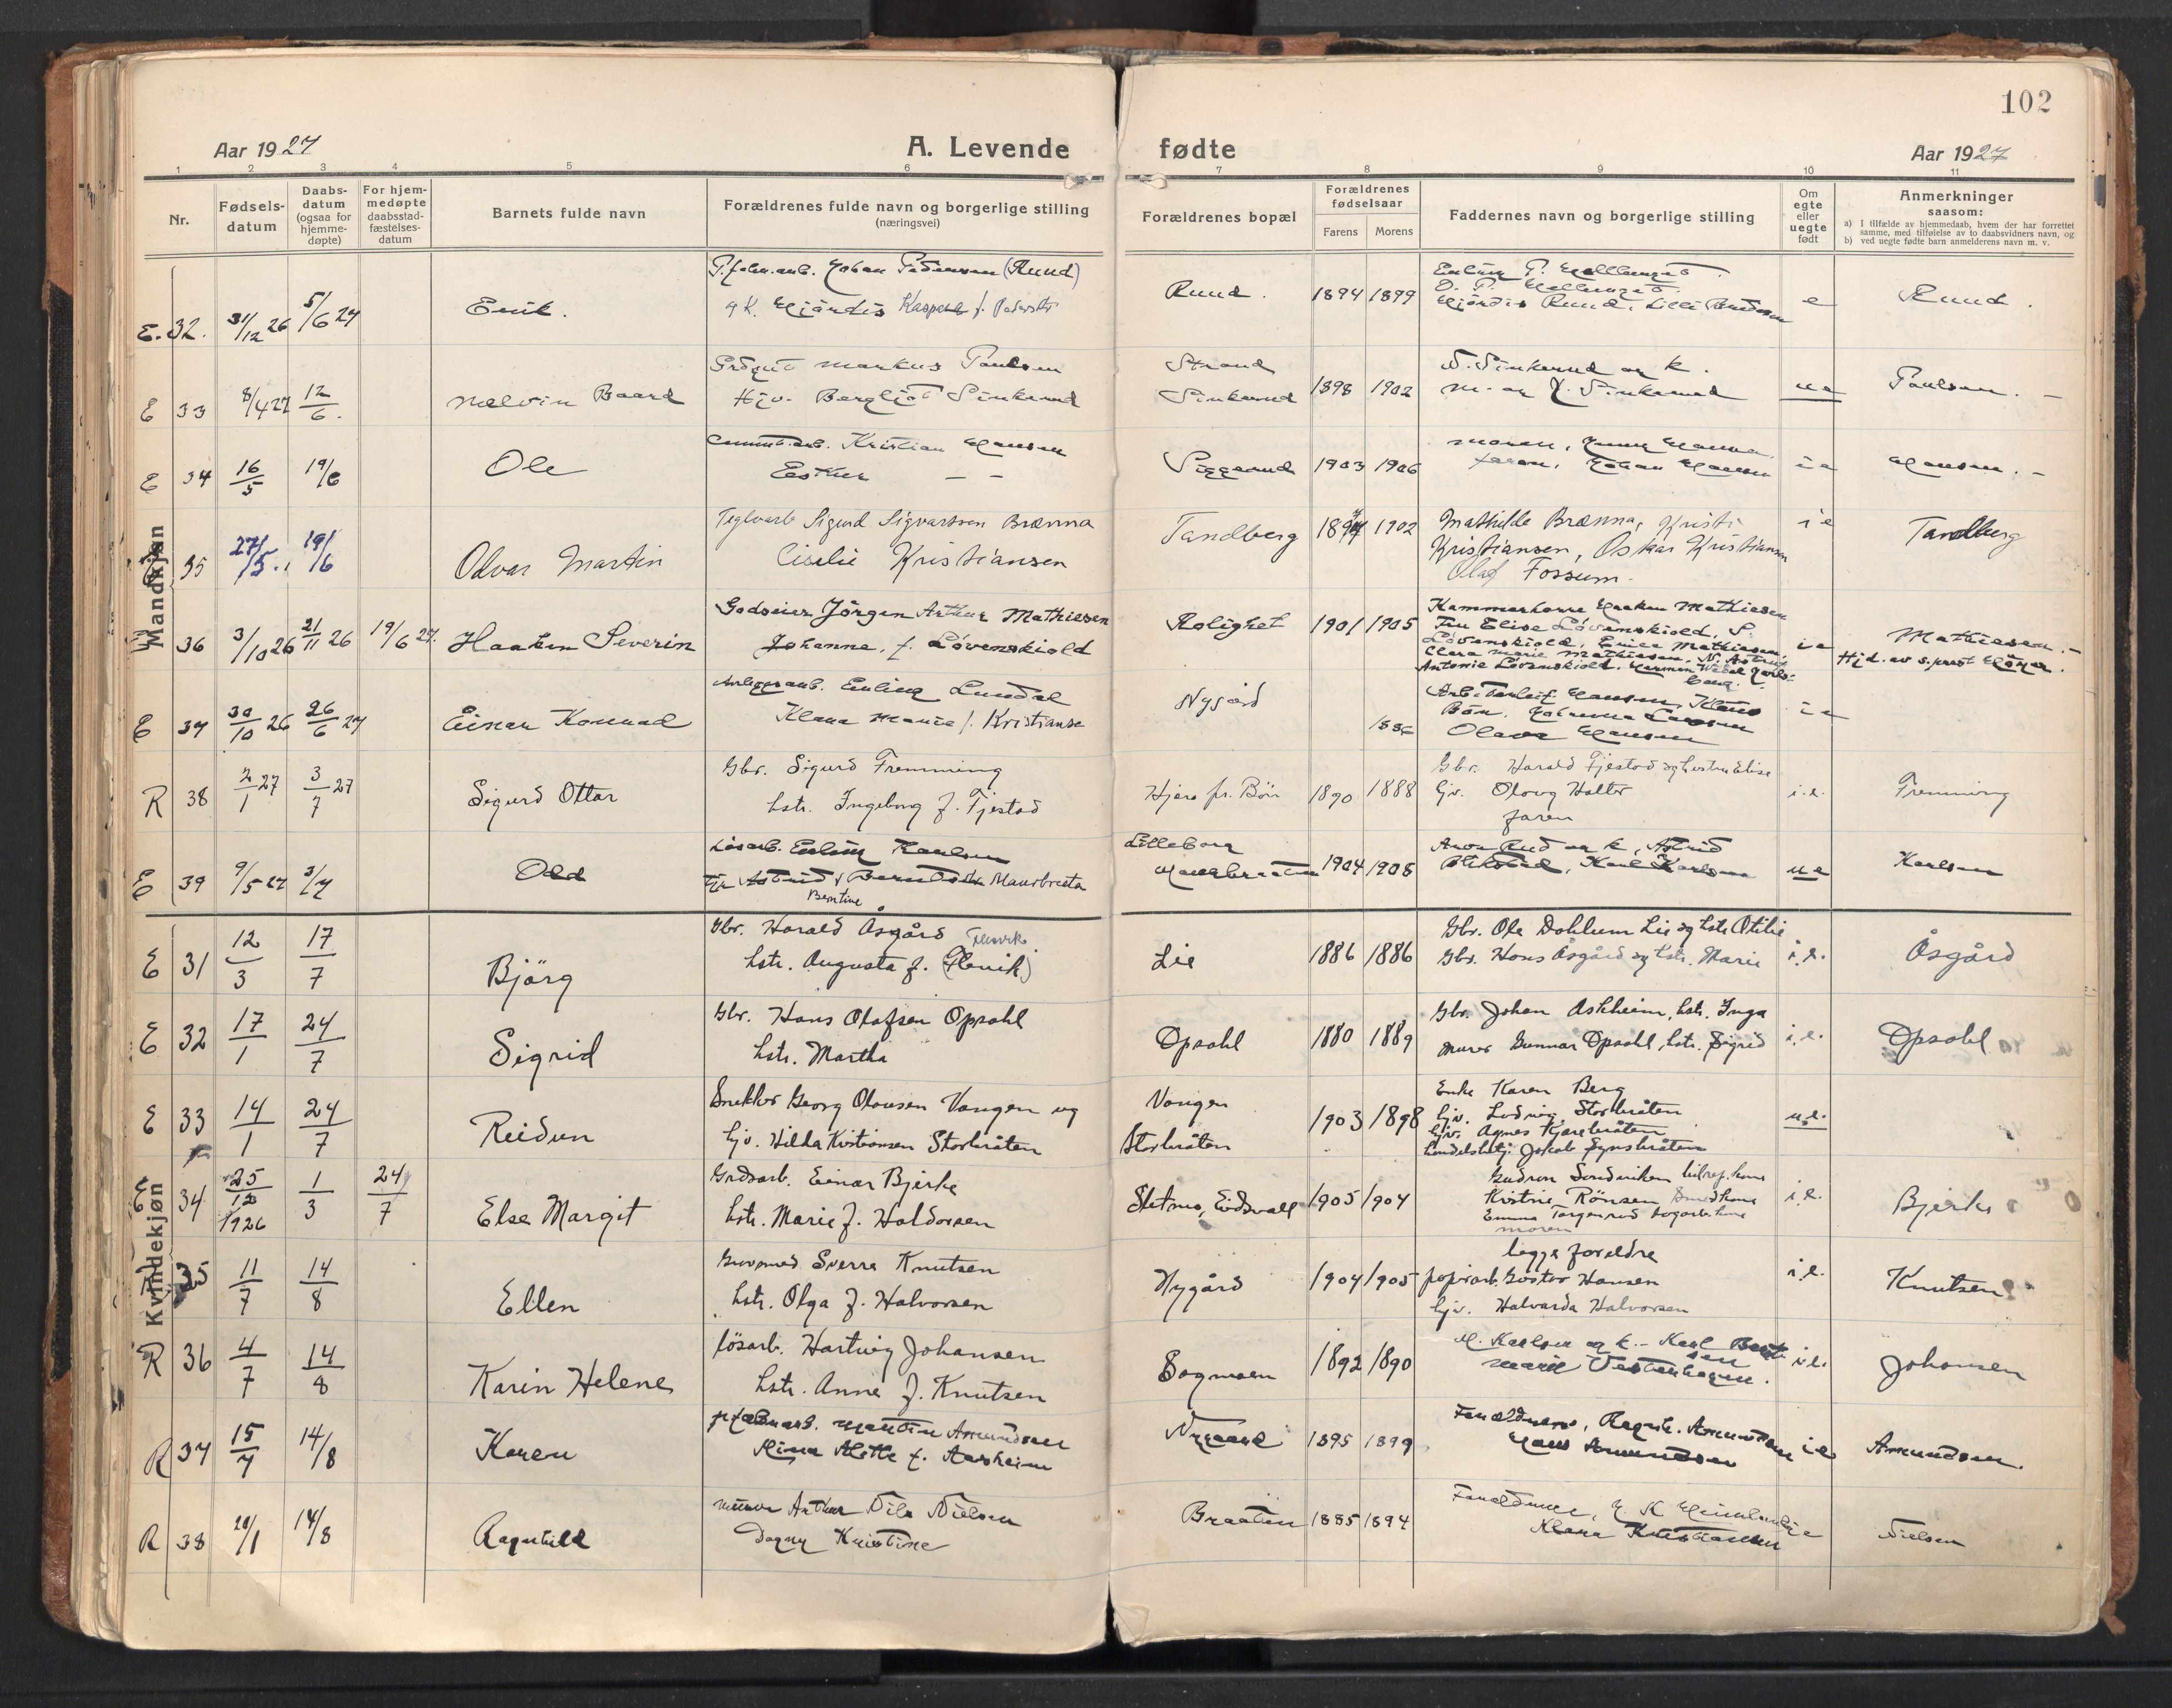 102
Aar 1927 A. Levende fødte Aar 1927
1 2 3 4 5 6 7 8 9 10 11
Nr.
Fødsels-
datum
Daabs-
datum
(ogsaa for
hjemme-
døpte)
For hjem-
medøpte
daabsstad-
fæstelses-
datum
Barnets fulde navn
Forældrenes fulde navn og borgerlige stilling
(næringsvei)
Forældrenes bopæl
Forældrenes
fødselsaar
Farens Morens
Faddernes navn og borgerlige stilling
Om
egte
eller
uegte
født
Anmerkninger
saasom:
a) I tilfælde av hjemmedaab, hvem der har forrettet
samme, med tilføielse av to daabsvidners navn, og
b) ved uegte fødte barn anmelderens navn m. v.
Mandkjøn
E. 32. 31/12 26 5/6 27 Erik. Johan Pedersen (Ruud)
g K. Hjørdis Kaspara f. Ruud. 1894 1899 e Ruud.
Hjørdis Ruud, Lilli
E 33 8/4 27 12/6. Melvin Baard Markus Paulsen
Hjv. Bergljot Sinkerud
Strand
Sinkerud 1898 1902 N. Sinkerud og k.
M. og J. Sinkerud ue Paulsen. -
E 34 16/5 19/6 Ole Kristian Hansen
Esther - -
Siggerud 1903 1906 moren,
faren, Johan Hansen ie Hansen. -
35 27/5 19/6 Odvar Martin Teglvarb Sigurd Sigvartsen Brænna
Cisilie Kristiansen
Tandberg 1902 Mathilde Brænna, Kristi
Kristiansen, Oskar Kristiansen
Olaf Fossum.
ie Tandberg
36 3/10 26 21/11 26 19/6 27. Haaken Severin Godseier Jörgen Arthur Mathiesen
Johanne, f. Lövenskiold
Rolighet 1901 1905 Kammerherre Haaken Mathiesen
Fru Elise Lövenskiold, S.
Lövenskiold, Erica Mathiesen,
Clara Marie Mathiesen, N. Astrup
Antonie Lövenskiold, Herman Wedel Jarls-
berg.
ie Mathiesen. -
Hjd. av s.prest Höyer.
E 37 30/10 26 26/6 27 Einar Konrad Erling Lundal
Klara Marie f. Kristianse
Nygård Hansen,
Bön, Johanna Larsen
Olava Hansen
ie
R 38 2/1 27 3/7 27 Sigurd Ottar Gbr. Sigurd Fremming
hstr. Ingeborg f. Fjestad
Hjera pr. Bön 1890 1888 Gbr. Harald Fjestad og hustru Elise
hjv. Olaug Holter
faren
i.e. Fremming
E 39 9/5 27 3/7 Odd Løsarb. Erling Karlsen
Tj. Astrid Maurbråten
Berntine
Lilleborg
1904 1908 Arne Rud og k, Astrid
Blikstad, Karl Karlsen ue Karlsen
Kvindekjøn
E 31 12/3 17/7 Björg Gbr. Harald Åsgård
hstr. Augusta f. (Flesvik)
Lie 1886 1886 Gbr. Ole Dahlum Lie og hstr. Otilie
Gbr. Hans Åsgård og hstr. Marie i.e. Åsgård
E 32 17/1 24/7 Sigrid Gbr. Hans Olafsen Opsahl
hstr. Martha
Opsahl 1880 1889 Gbr. Johan Askheim, hstr. Inga
Murer Gunnar Opsahl, hstr. Sigrid i.e. Opsahl
E 33 14/1 24/7 Reidun Snekker Georg Olausen Vangen og
hjv. Hilda Kristiansen Storbråten
Vangen
Storbråten 1903 1898 Enke Karen Berg
hjv. Ludvig Storbråten
hjv. Agnes Kjærbråten
handelsbetj. Jakob Synsbråten
u.e.
E 34 25/12 1926 1/3 24/7 Else Margit Grdsarb. Einar Bjerke
hstr. Marie f. Haldorsen
Sletmo, Eidsvoll 1905 1904 Gudrun Sandviken
Kristine Rönsen Smedkone
Emma Torgersrud
moren
i.e. Bjerke
R 35 11/7 14/8 Ellen Sverre Knutsen
hstr. Olga f. Halvorsen
Nygård 1904 1905 begge foreldre
papirarb. Gustav Hansen
hjv. Halvarda Halvorsen
i.e. Knutsen
R 36 4/7 14/8 Karin Helene lösarb. Hartvig Johansen
hstr. Anna f. Knutsen
Sogmoen 1892 1890 M. Karlsen og k. - Karl
Marie Vestenhagen. i.e. Johansen
R 37 15/7 14/8 Karen Martin Amundsen
Alette f. Aasheim
Nygaard 1895 1899 Forældrene, Ragnh. Amundsen
Hans Amundsen ie Amundsen.
R 38 20/1 14/8 Ragnhild Murer Arthur Nils Nielsen
Dagny Kristine
Braaten 1885 1894 Forældrene,
Klara Kristiansen Nielsen